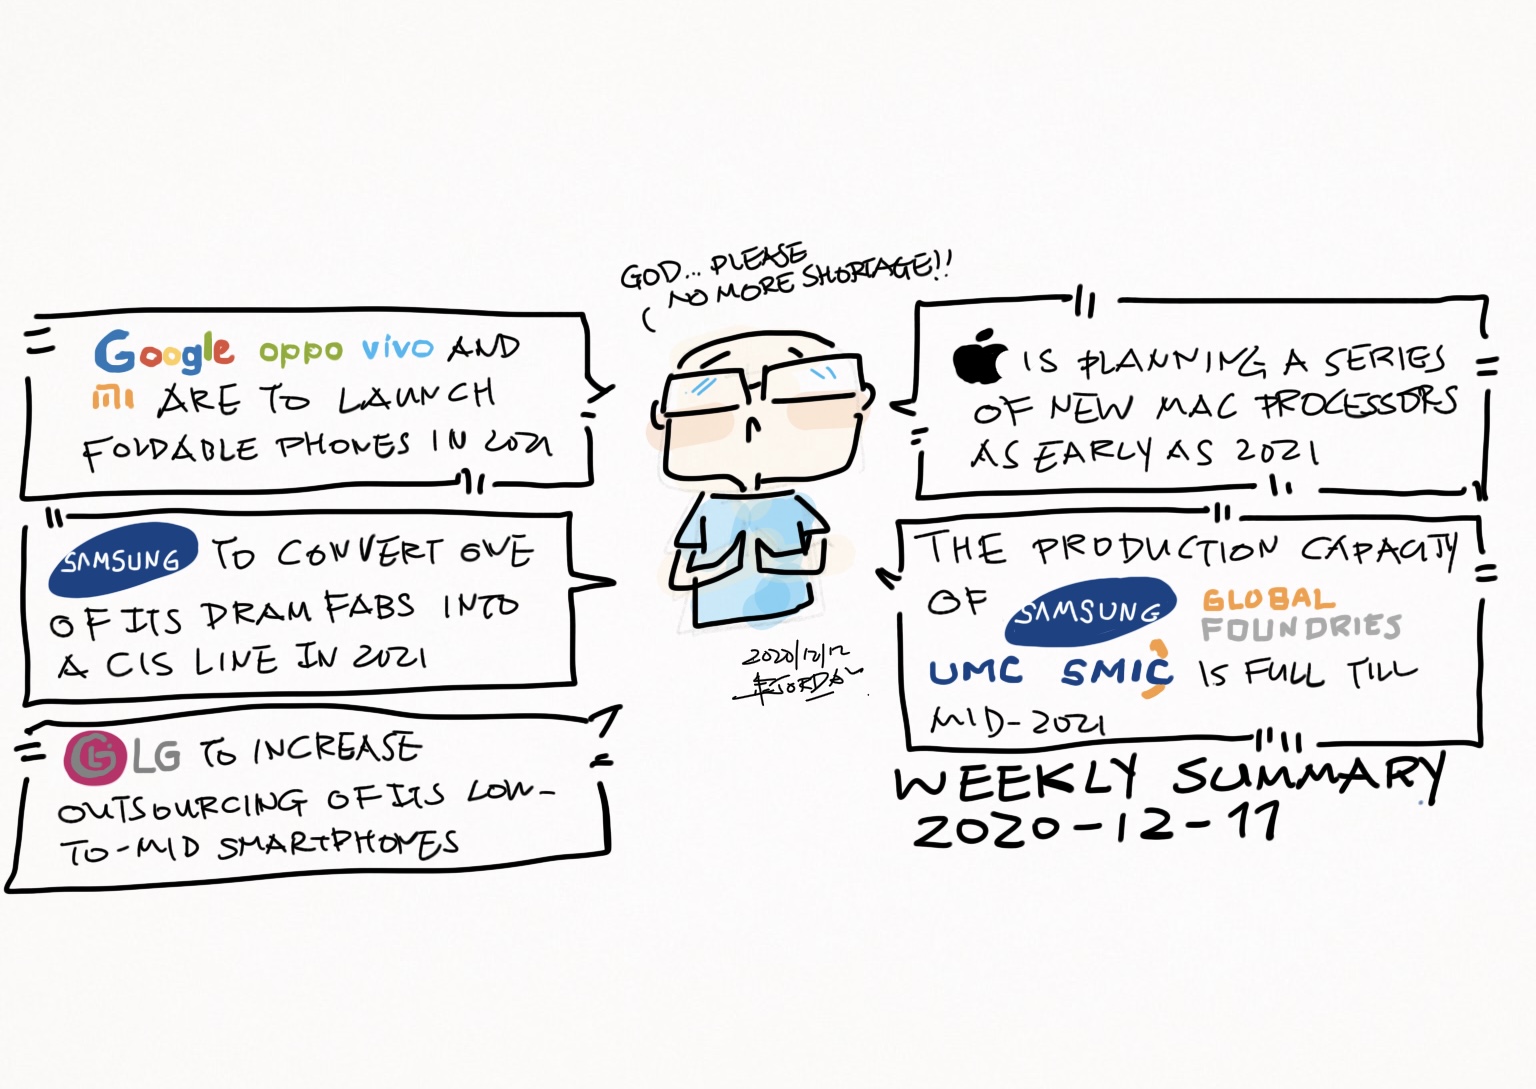 GOD... PLEASE
NO MORE SHORTAGE!!
Google oppo vivo AND
MI ARE TO LAUNCH
FOLDABLE PHONES IN 2021
SAMSUNG TO CONVERT ONE
OF ITS DRAM FABS INTO
A CIS LINE IN 2021
LG TO INCREASE
OUTSOURCING OF ITS LOW-
TO-MID SMARTPHONES
IS PLANNING A SERIES
OF NEW MAC PROCESSORS
AS EARLY AS 2021
THE PRODUCTION CAPACITY
OF SAMSUNG GLOBAL
FOUNDRIES
UMC SMIC IS FULL TILL
MID-2021
2020/12/12
WEEKLY SUMMARY
2020-12-11